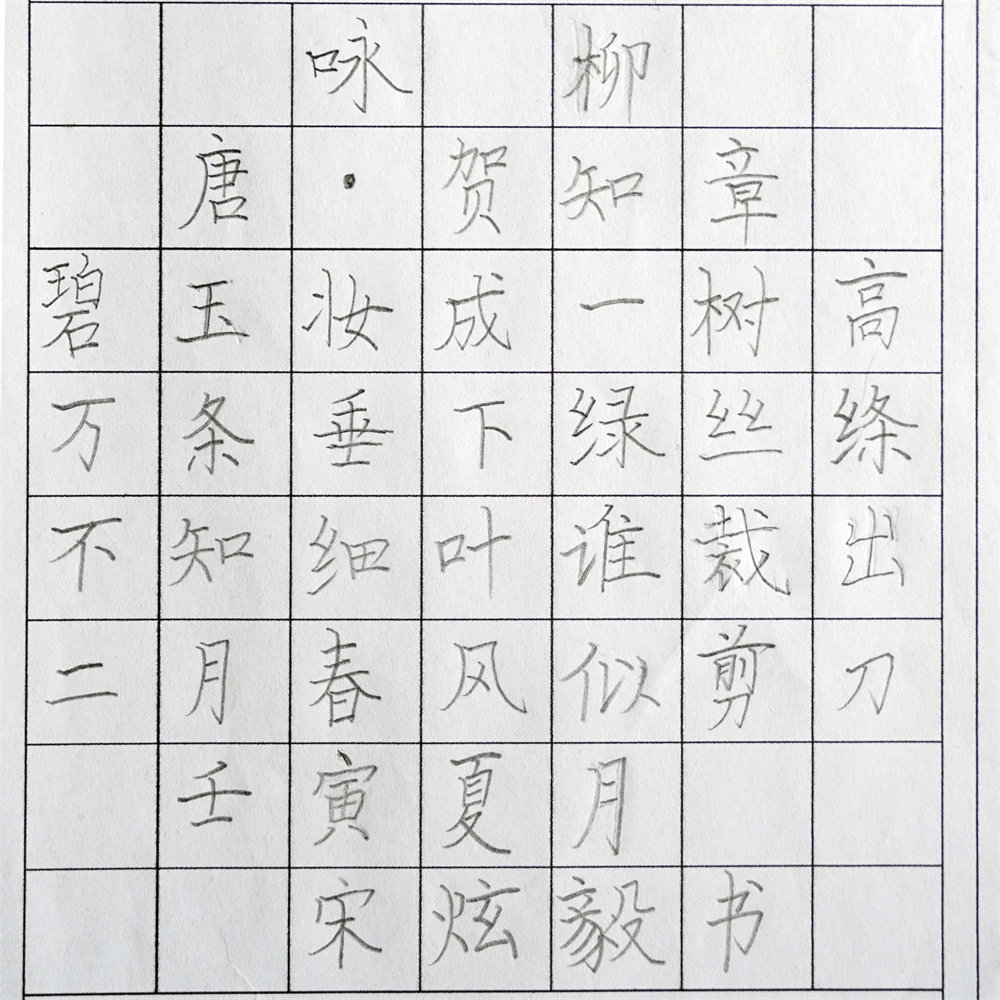 咏柳
唐·贺知章
碧玉妆成一树高
万条垂下绿丝绦
不知细叶谁裁出
二月春风似剪刀
壬寅夏月
宋炫毅书